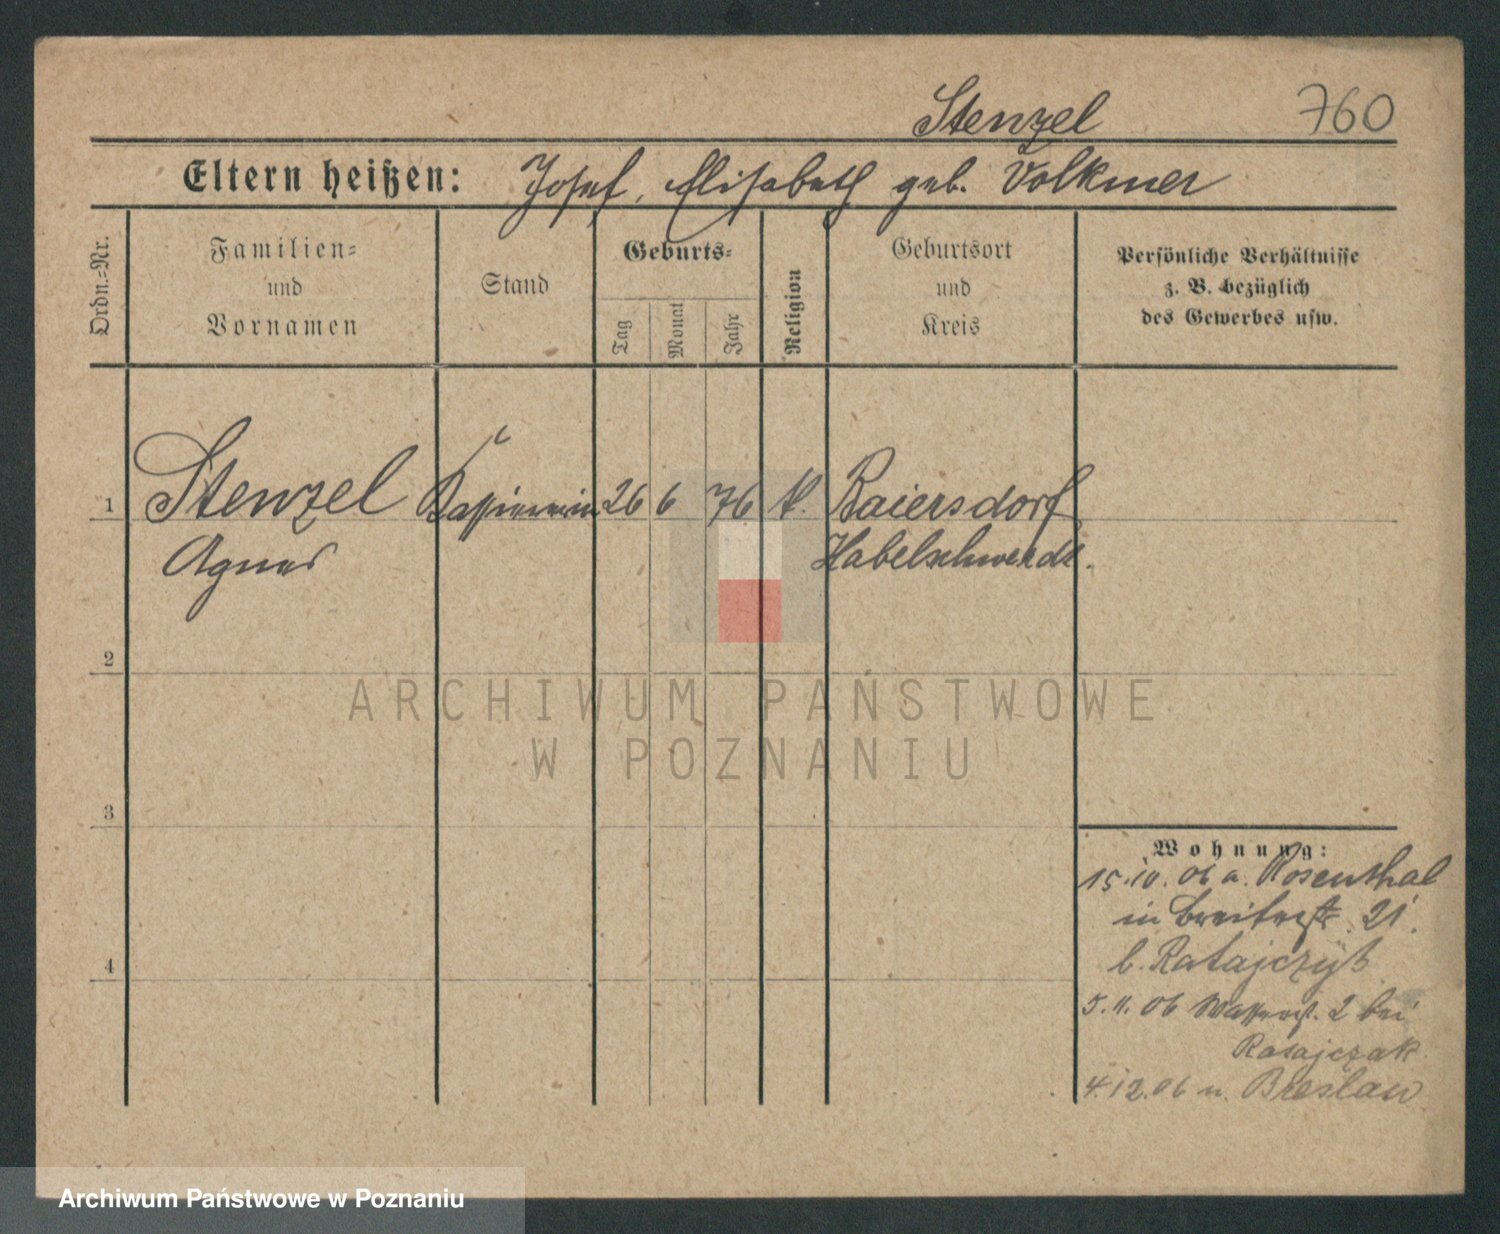 Stenzel 760
Eltern heißen: Josef, Elisabeth geb. Volkmer
Ordn.-Nr.
Familien-
und
Vornamen
Stand
Geburts-
Tag
Monat
Jahr
Religion
Geburtsort
und
Kreis
Persönliche Verhältnisse
z. B. bezüglich
des Gewerbes usw.
1 Stenzel Kassiererin 26 6 76 k. Baiersdorf
Agnes Habelschwerdt.
2
3
4
Wohnung:
15.10.06 a. Rosenthal
in Breitestr. 21.
b. Ratajczyk
5.11.06 Wasserst. 2 bei
Ratajczak
4.12.06 n. Breslau
ARCHIWUM PAŃSTWOWE
W POZNANIU
Archiwum Państwowe w Poznaniu